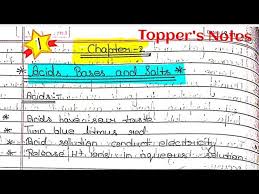 Topper's Notes
1
Chapter-2
* Acids, Bases and Salts *
Acids :-
* Acids have sour taste
* Turn blue litmus red
* Acid solution conduct electricity
* Release H+ ions in aqueous solution